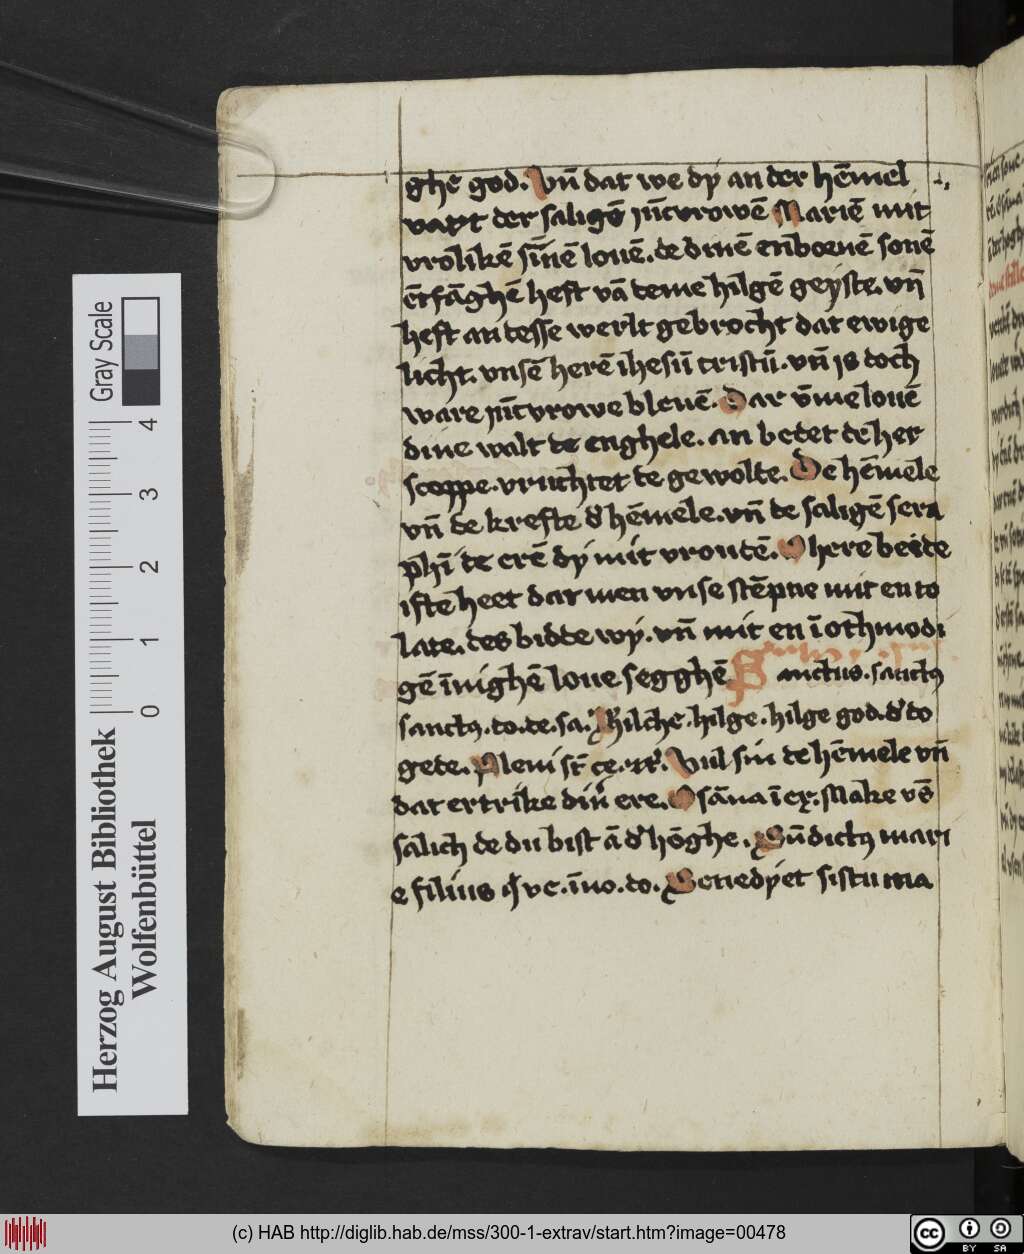 ghe god. Vn̄ dat we dy an der hēmel
vart der saligē jūcvrowē Mariē mit
vrolikē sīnē louē. de dinē enboꝛuē sonē
ētfāghē heft vā deme hilgē geyste. vn̄
heft an desse werlt gebrocht dat ewige
licht. vnsē herē ihesū cristū. vn̄ is doch
ware jūcvrowe bleuē. Dar v̄me louē
dine walt de enghele. an bedet de her
scoppe. vruchtet de gewolde. De hēmele
vn̄ de krefte d' hēmele. vn̄ de saligē sera
phī de erē dy mit vroudē. O here beide
iste heet dar men vnse stēpne mit en to
late. des bidde wy. vn̄ mit en ī othmodi
gē īnighē loue segghē Sanctus. sanctus
sanctꝯ. do. de. sa. Hilche. hilge. hilge god. d' do
gede. Pleni st̄ ce. Vul sin de hēmele vn̄
dat ertrike din' ere. Osāna ī ex. Make vs̄
salich de du bist ā d' hōghe. Bn̄dictꝯ mari
e filius q̄ ve. ī no. do. Benedyet sistu ma
Herzog August Bibliothek
Wolfenbüttel
Gray Scale
0 1 2 3 4
(c) HAB http://diglib.hab.de/mss/300-1-extrav/start.htm?image=00478
cc BY SA